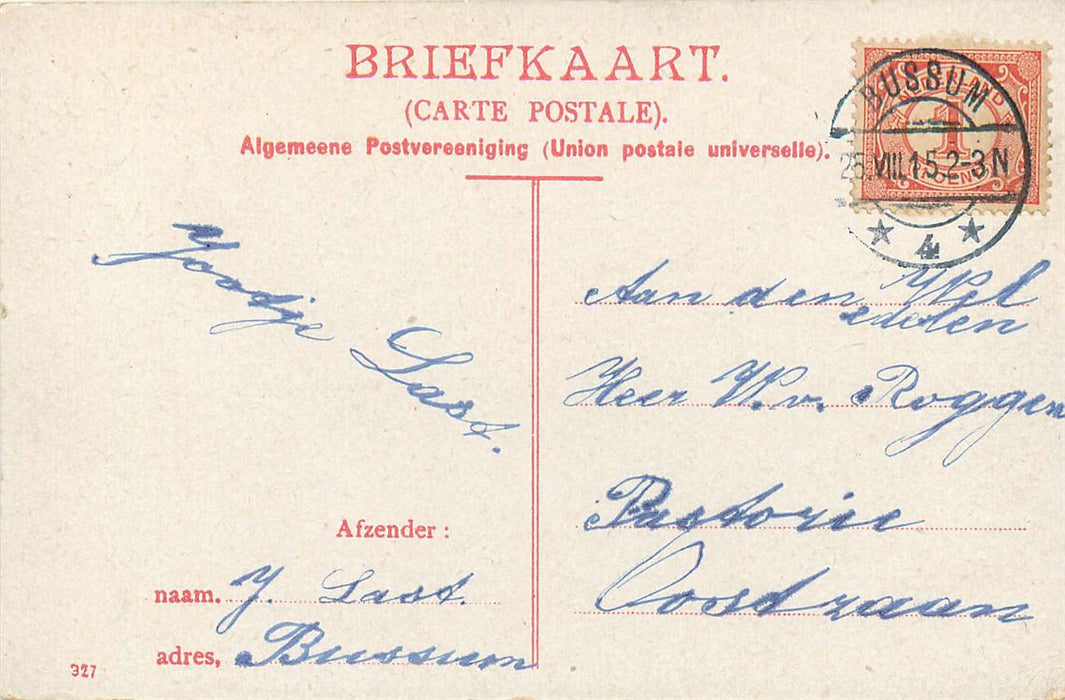 BRIEFKAART.
(CARTE POSTALE).
Algemeene Postvereeniging (Union postale universelle).
BUSSUM
25.VIII.15.2-3N
4
1
Jootje Last.
Aan den Wel
edelen
Heer W. v. Roggen
Pastorie
Oostzaan
Afzender :
naam. J. Last.
adres, Bussum
327